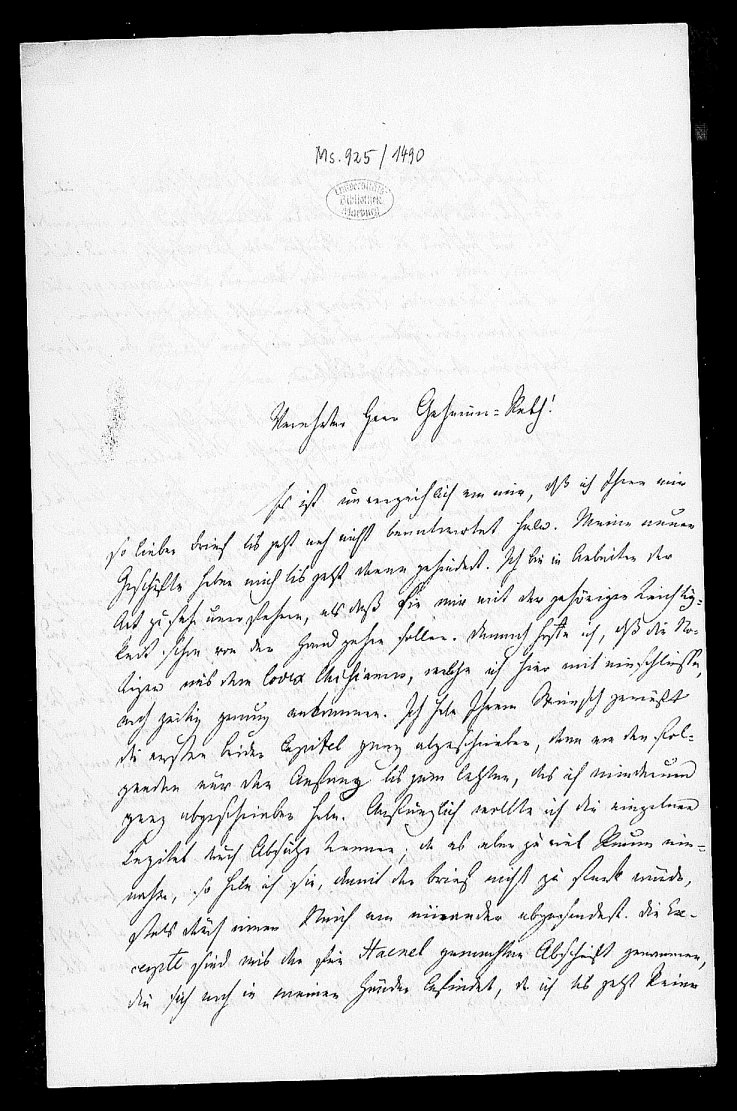 Ms. 925/1490
Universitäts
Bibliothek
Marburg
Verehrter Herr Geheim-Rath!
Es ist unverzeihlich von mir, daß ich Ihren mir
so lieben Brief bis jetzt noch nicht beantwortet habe. Meine neuen
Geschäfte haben mich bis jetzt daran gehindert. Ich bin in Arbeiten der
Art zu sehr unerfahren, als daß sie mir mit der gehörigen Leichtig-
keit schon von der Hand gehen sollten. Dennoch hoffe ich, daß die No-
tizen aus dem Codex Chisianus, welche ich hier mit einschließe,
noch zeitig genug ankommen. Ich habe Ihrem Wunsch gemäß
die ersten beiden Capitel ganz abgeschrieben, dann von den fol-
genden nur den Anfang bis zum letzten, das ich wiederum
ganz abgeschrieben habe. Anfänglich wollte ich die einzelnen
Capitel durch Absätze trennen; da es aber zu viel Raum ein-
nahm, so habe ich sie, damit der Brief nicht zu stark würde,
stets durch einen Strich von einander abgesondert. Die Ex-
cerpte sind aus der für Haenel gemachten Abschrift genommen,
die sich noch in meinen Händen befindet, da ich bis jetzt keine